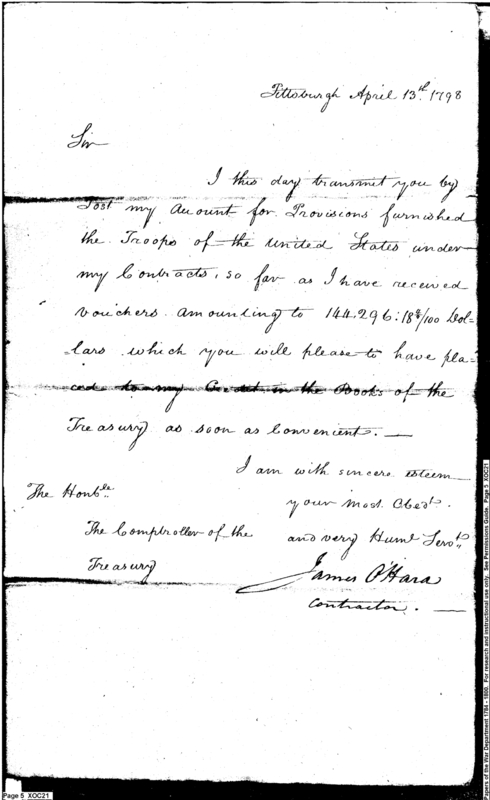 Pittsburgh April 13th. 1798
Sir
I this day transmit you by
Post my Account for Provisions furnished
the Troops of the United States under
my Contracts, so far as I have received
vouchers. amounting to 144.296:18 /100 Dol-
lars which you will please to have pla-
ced to my Credit in the Books of the
Treasury as soon as Convenient. —
I am with sincere esteem
The Honble.
your most Obedt.
The Comptroller of the
and very Huml Servt.
Treasury
James O'Hara
Contractor. —
Page 5 XOC21
Papers of the War Department 1784 - 1800. For research and instructional use only. See Permissions Guide. Page 5 XOC21